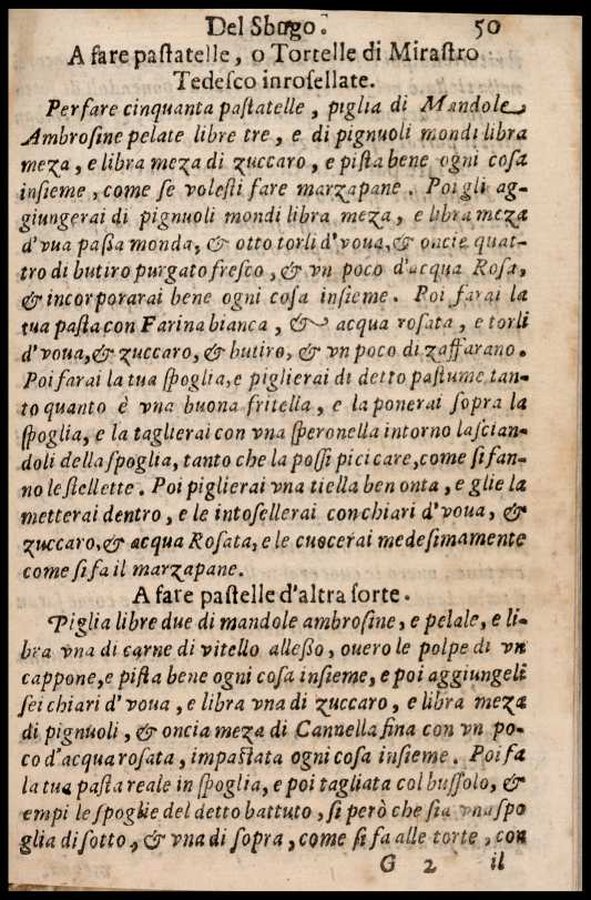 Del Sbugo. 50
A fare pastatelle, o Tortelle di Mirastro
Tedesco inrosellate.
Per fare cinquanta pastatelle, piglia di Mandole
Ambrosine pelate libre tre, e di pignuoli mondi libra
meza, e libra meza di zuccaro, e pista bene ogni cosa
insieme, come se volesti fare marzapane. Poi gli ag-
giungerai di pignuoli mondi libra meza, e libra meza
d'vua passa monda, & otto torli d'voua, & oncie quat-
tro di butiro purgato fresco, & vn poco d'acqua Rosa,
& incorporarai bene ogni cosa insieme. Poi farai la
tua pasta con Farina bianca, & acqua rosata, e torli
d'voua, & zuccaro, & butiro, & vn poco di zaffarano.
Poi farai la tua spoglia, e piglierai di detto pastume tan-
to quanto è vna buona fritella, e la ponerai sopra la
spoglia, e la taglierai con vna speronella intorno lascian-
doli della spoglia, tanto che la possi picicare, come si fan-
no le stellette. Poi piglierai vna tiella ben onta, e glie la
metterai dentro, e le intosellerai con chiari d'voua, &
zuccaro, & acqua Rosata, e le cuocerai medesimamente
come si fa il marzapane.
A fare pastelle d'altra sorte.
Piglia libre due di mandole ambrosine, e pelale, e li-
bra vna di carne di vitello allesso, ouero le polpe di vn
cappone, e pista bene ogni cosa insieme, e poi aggiungeli
sei chiari d'voua, e libra vna di zuccaro, e libra meza
di pignuoli, & oncia meza di Cannella fina con vn po-
co d'acqua rosata, impastata ogni cosa insieme. Poi fa
la tua pasta reale in spoglia, e poi tagliata col bussolo, &
empi le spoglie del detto battuto, si però che sia vna spo
glia di sotto, & vna di sopra, come si fa alle torte, con
G 2 il